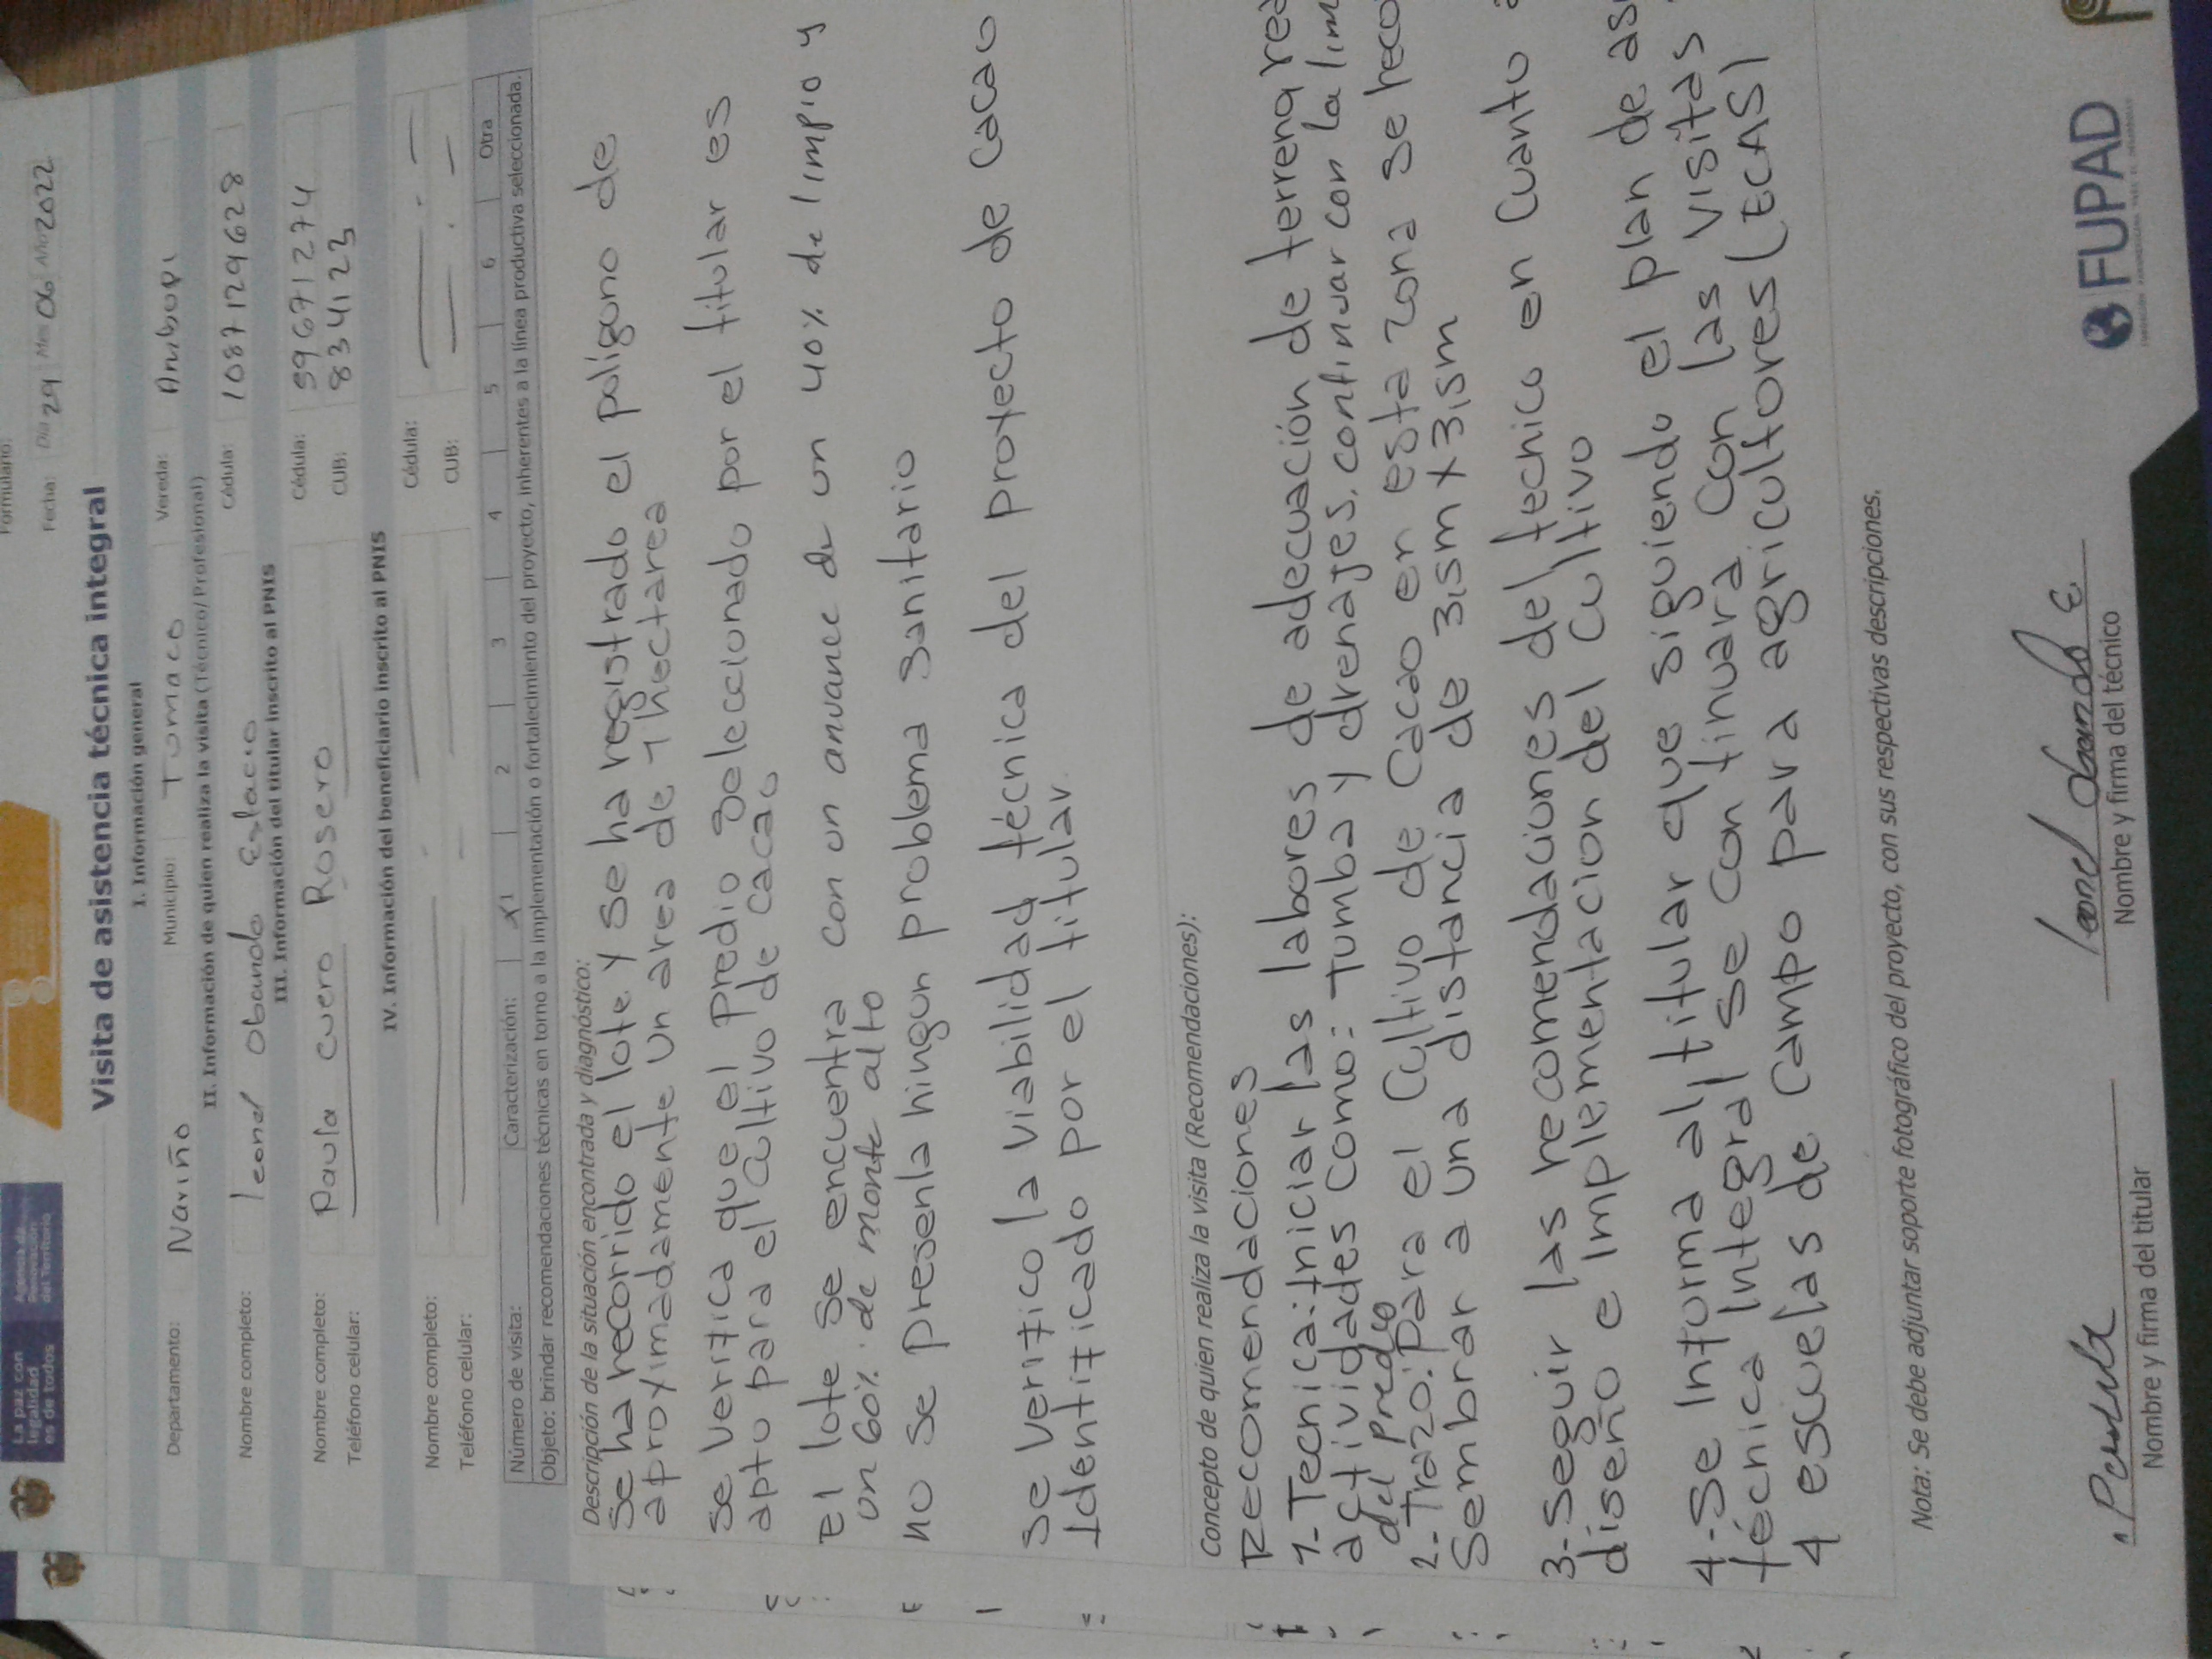 La paz con
legalidad
es de todos
Agencia de
Renovación
del Territorio
Formulario:
Fecha: Día 29 Mes 06 Año 2022
Visita de asistencia técnica integral
I. Información general
Departamento: Nariño Municipio: Tumaco Vereda: Ambupi
II. Información de quien realiza la visita (Técnico/Profesional)
Nombre completo: leonel Obando Estacio Cédula: 1087129628
III. Información del titular inscrito al PNIS
Nombre completo: Paula cuero Rosero Cédula: 59671274
Teléfono celular: CUB: 834123
IV. Información del beneficiario inscrito al PNIS
Nombre completo: Cédula:
Teléfono celular: CUB:
Número de visita: Caracterización: X 1 2 3 4 5 6 Otra
Objeto: brindar recomendaciones técnicas en torno a la implementación o fortalecimiento del proyecto, inherentes a la línea productiva seleccionada.
Descripción de la situación encontrada y diagnóstico:
Se ha recorrido el lote y se ha registrado el polígono de
aproximadamente un area de 1 hectarea
se verifica que el Predio seleccionado por el titular es
apto para el cultivo de cacao
El lote se encuentra con un anvance de un 40% de limpio y
un 60% de monte alto
no se presenta ningun problema sanitario
se verifico la viabilidad técnica del proyecto de cacao
Identificado por el titular
Concepto de quien realiza la visita (Recomendaciones):
Recomendaciones
1-Tecnica: Iniciar las labores de adecuación de terreno
actividades como: tumba y drenajes, continuar con la
del predio
2-Trazo: para el cultivo de cacao en esta zona se
Sembrar a una distancia de 3,5m x 3,5m
3-seguir las recomendaciones del tecnico en cuanto a
diseño e implementacion del cultivo
4-Se Informa al titular que siguiendo el plan de
técnica Integral se continuara con las visitas
4 escuelas de campo para agricultores (ECAS)
Nota: Se debe adjuntar soporte fotográfico del proyecto, con sus respectivas descripciones.
Paula
Nombre y firma del titular
leonel Obando E.
Nombre y firma del técnico
FUPAD